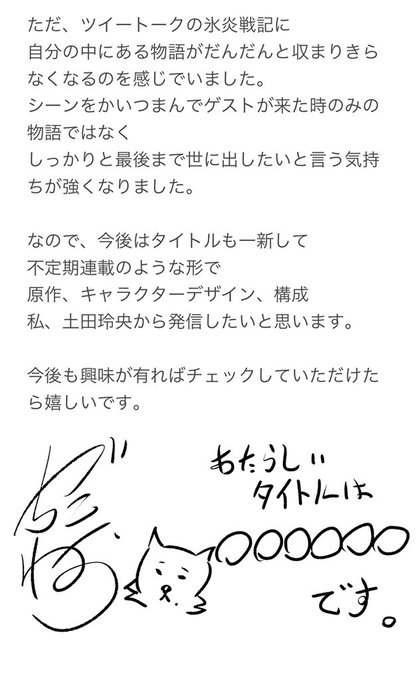 ただ、ツイートークの氷炎戦記に
自分の中にある物語がだんだんと収まりきら
なくなるのを感じでいました。
シーンをかいつまんでゲストが来た時のみの
物語ではなく
しっかりと最後まで世に出したいと言う気持
ちが強くなりました。
なので、今後はタイトルも一新して
不定期連載のような形で
原作、キャラクターデザイン、構成
私、土田玲央から発信したいと思います。
今後も興味が有ればチェックしていただけた
ら嬉しいです。
あたらしい
タイトルは
〇〇〇〇〇〇
です。